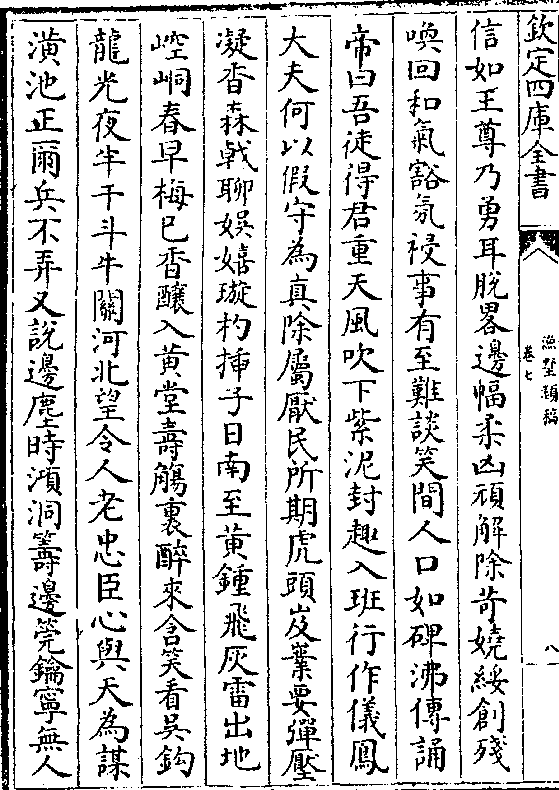 欽定四庫全書
漁墅類稿
卷七
八
信如王尊乃勇耳脫畧邊幅柔凶頑解除苛嬈綏創殘
喚回和氣豁氛祲事有至難談笑間人口如碑沸傳誦
帝曰吾徒得君重天風吹下紫泥封趣入班行作儀鳳
大夫何以假守為真除屬厭民所期虎頭岌嶪要彈壓
凝香森戟聊娛嬉璇杓揷子日南至黃鍾飛灰雷出地
崆峒春早梅已香釀入黃堂壽觴裏醉來含笑看吳鈎
龍光夜半干斗牛關河北望令人老忠臣心與天為謀
潢池正爾兵不弄又說邊塵時澒洞籌邊筦鑰寧無人